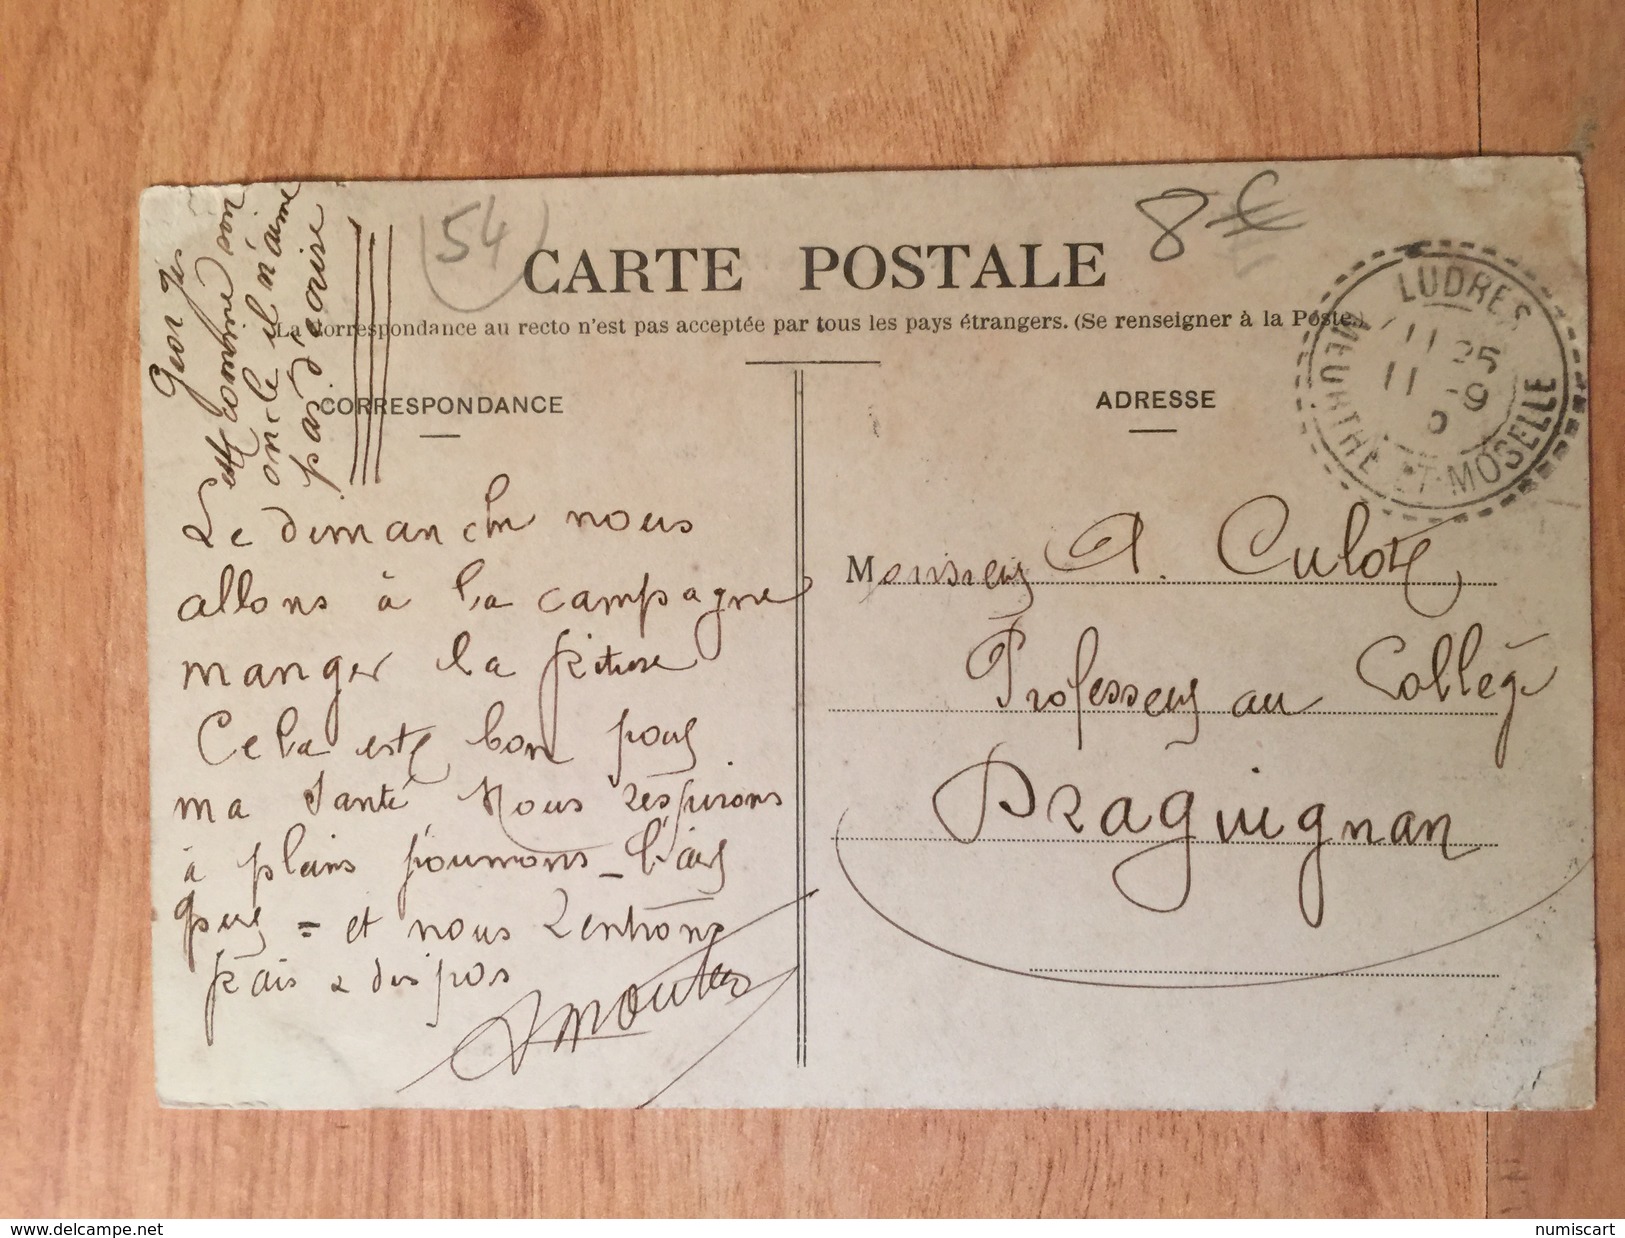 54
8 €
CARTE POSTALE
La Correspondance au recto n'est pas acceptée par tous les pays étrangers. (Se renseigner à la Poste.)
CORRESPONDANCE
ADRESSE
LUDRES
MEURTHE-ET-MOSELLE
11 25
11 - 9
Georges
est comme son
oncle il n'aime
pas écrire
Le dimanche nous
allons à la campagne
manger la friture
Cela est bon pour
ma santé Nous respirons
à pleins poumons l'air
pur = et nous rentrons
frais & dispos
Monsieur A. Culote
Professeur au Collège
Draguignan
www.delcampe.net
numiscart